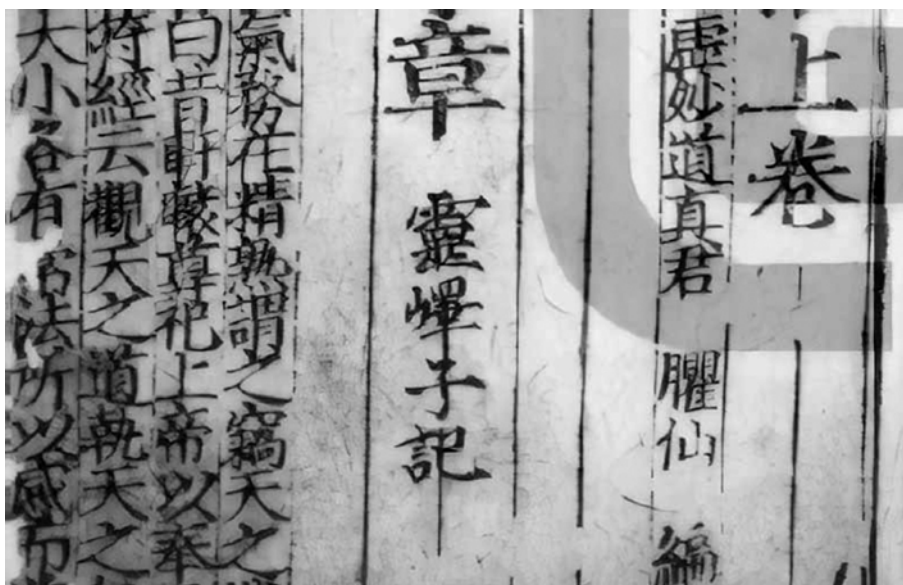 上卷
虛妙道真君 臞仙 編
章 靈嶧子記
氣務在精熟謂之竊天之
曰昔軒轅尊祀上帝以奉
持經云觀天之道執天之
大小各有 法所以感而